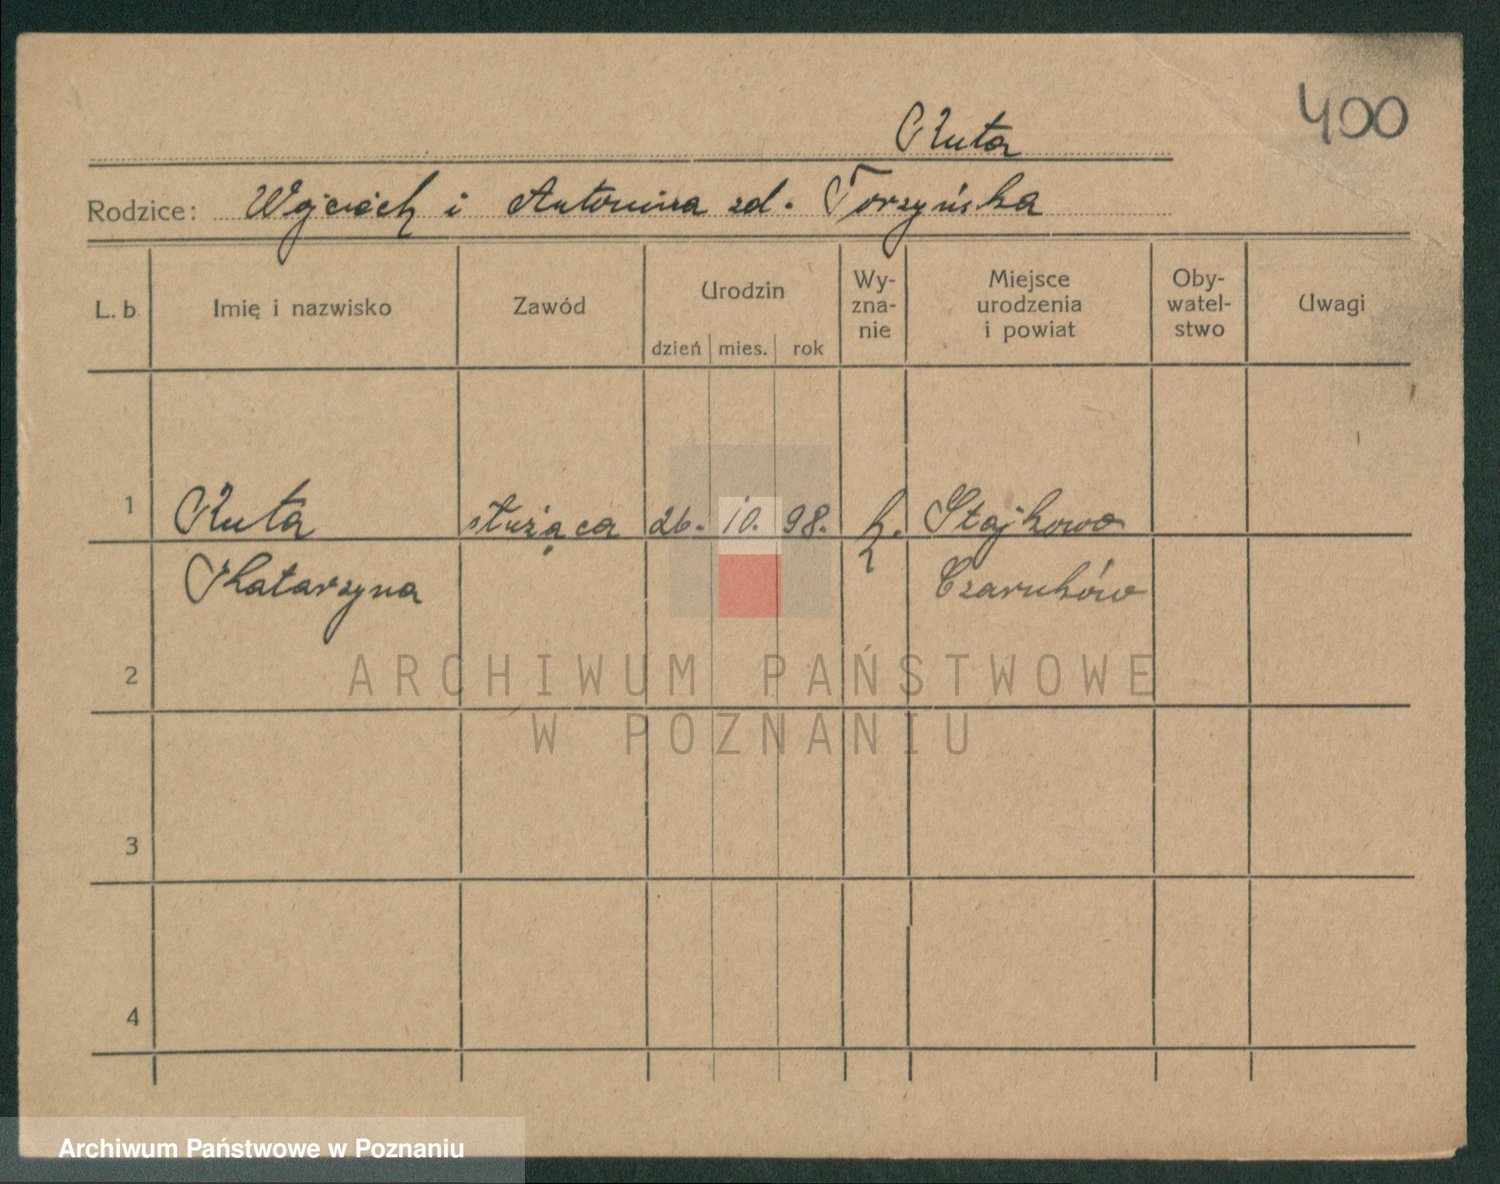 400
Ruta
Rodzice: Wojciech i Antonina zd. Torzyńska
L. b Imię i nazwisko Zawód Urodzin dzień mies. rok Wy-zna-nie Miejsce urodzenia i powiat Oby-watel-stwo Uwagi
1 Ruta służąca 26. 10. 98. k. Stajkowo
Katarzyna Czarnków
2
3
4
ARCHIWUM PAŃSTWOWE
W POZNANIU
Archiwum Państwowe w Poznaniu